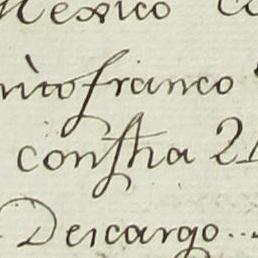 Mexico
franco
consta 21
Descargo...